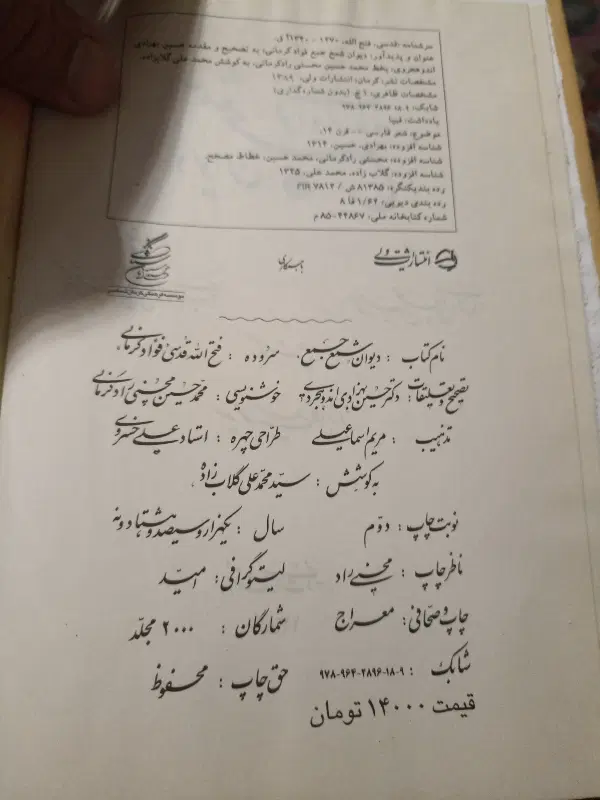 سرشناسه: قدسی، فتح الله، ۱۲۷۰ - ۱۳۴۰ ق.
عنوان و پدیدآور: دیوان شمع جمع فواد کرمانی؛ به تصحیح و مقدمه حسین بهزادی
اندوهجردی، بخط محمد حسین محسنی رادکرمانی، به کوشش محمد علی گلابزاده.
مشخصات نشر: کرمان، انتشارات ولی، ۱۳۸۹
مشخصات ظاهری: ۱ ج. (بدون شماره گذاری)
شابک: ۹-۱۸-۲۸۹۶-۹۶۴-۹۷۸
یادداشت: فیپا
موضوع: شعر فارسی -- قرن ۱۴.
شناسه افزوده: بهزادی، حسین، ۱۳۱۴
شناسه افزوده: محسنی رادکرمانی، محمد حسین، خطاط. مصحح.
شناسه افزوده: گلاب زاده، محمد علی، ۱۳۲۵
رده بندیکنگره: ۸۱۳۸۵ ش / ۷۸۱۲ PIR
رده بندی دیویی: ۱/۶۲ فا ۸
شماره کتابخانه ملی: ۴۴۸۶۷-۸۵ م
انتشارات ولی
با همکاری
نام کتاب : دیوان شمع جمع. سروده : فتح الله قدسی فؤاد کرمانی
تصحیح و تعلیقات: دکتر حسین بهزادی اندوهجردی خوشنویسی : محمد حسین محسنی راد کرمانی
تذهیب : مریم اسماعیلی طراحی چهره : استاد علی خسروی
به کوشش : سید محمد علی گلاب زاده
نوبت چاپ : دوم سال : یکهزار و سیصد و هشتاد و نه
ناظر چاپ : محسنی راد لیتوگرافی : امید
چاپ و صحافی : معراج شمارگان : ۲۰۰۰ مجلد
شابک : ۹-۱۸-۲۸۹۶-۹۶۴-۹۷۸ حق چاپ : محفوظ
قیمت ۱۴۰۰۰ تومان